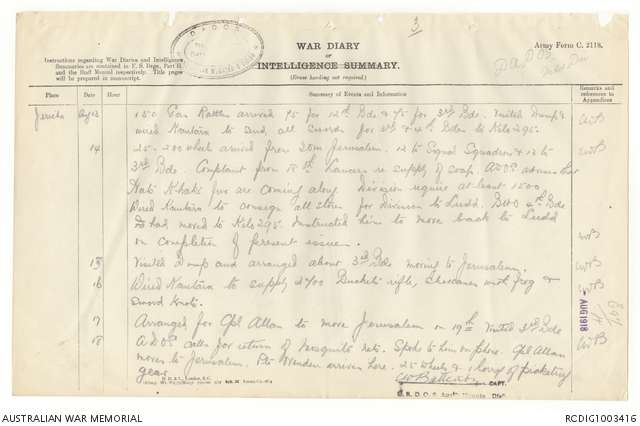 3
WAR DIARY
OF
INTELLIGENCE SUMMARY.
(Erase heading not required.)
Army Form C. 2118.
D A D O S
Instructions regarding War Diaries and Intelligence
Summaries are contained in F. S. Regs., Part II.
and the Staff Manual respectively. Title pages
will be prepared in manuscript.
Place Date Hour Summary of Events and Information Remarks and references to Appendices
Jericho Aug 13 150 Gas Rattles arrived 75 for 12th Bde & 75 for 3rd Bde. Visited Dump &
wired Kantara to send all swords for 3rd & 4th Bdes to Kilo 295.
14 25 - 200 which arrived from Jerusalem. 12 to Signal Squadron & 13 to
3rd Bde. Complaint from 10th Lancers re supply of soap. ADOS advises that
Hats Khaki fur are coming along Division require at least 1500.
Wired Kantara to consign all stores for Division to Ludd. BWO 4th Bde
had moved to Kilo 295. Instructed him to move back to Ludd
on completion of present issue.
15 Visited Dump and arranged about 3rd Bde moving to Jerusalem.
16 Wired Kantara to supply 2400 Buckets rifle, with frog &
Sword Knots.
17 Arranged for Cpl Allan to move Jerusalem on 19th Visited 3rd Bde
18 ADOS asks for return of Mosquito Nets. Spoke to him on phone. Cpl Allan
moves to Jerusalem. Pte arrives here. 25 wheels & 1 lorry of picketing
gear.
CAPT.
AUG 1918
AUSTRALIAN WAR MEMORIAL
RCDIG1003416